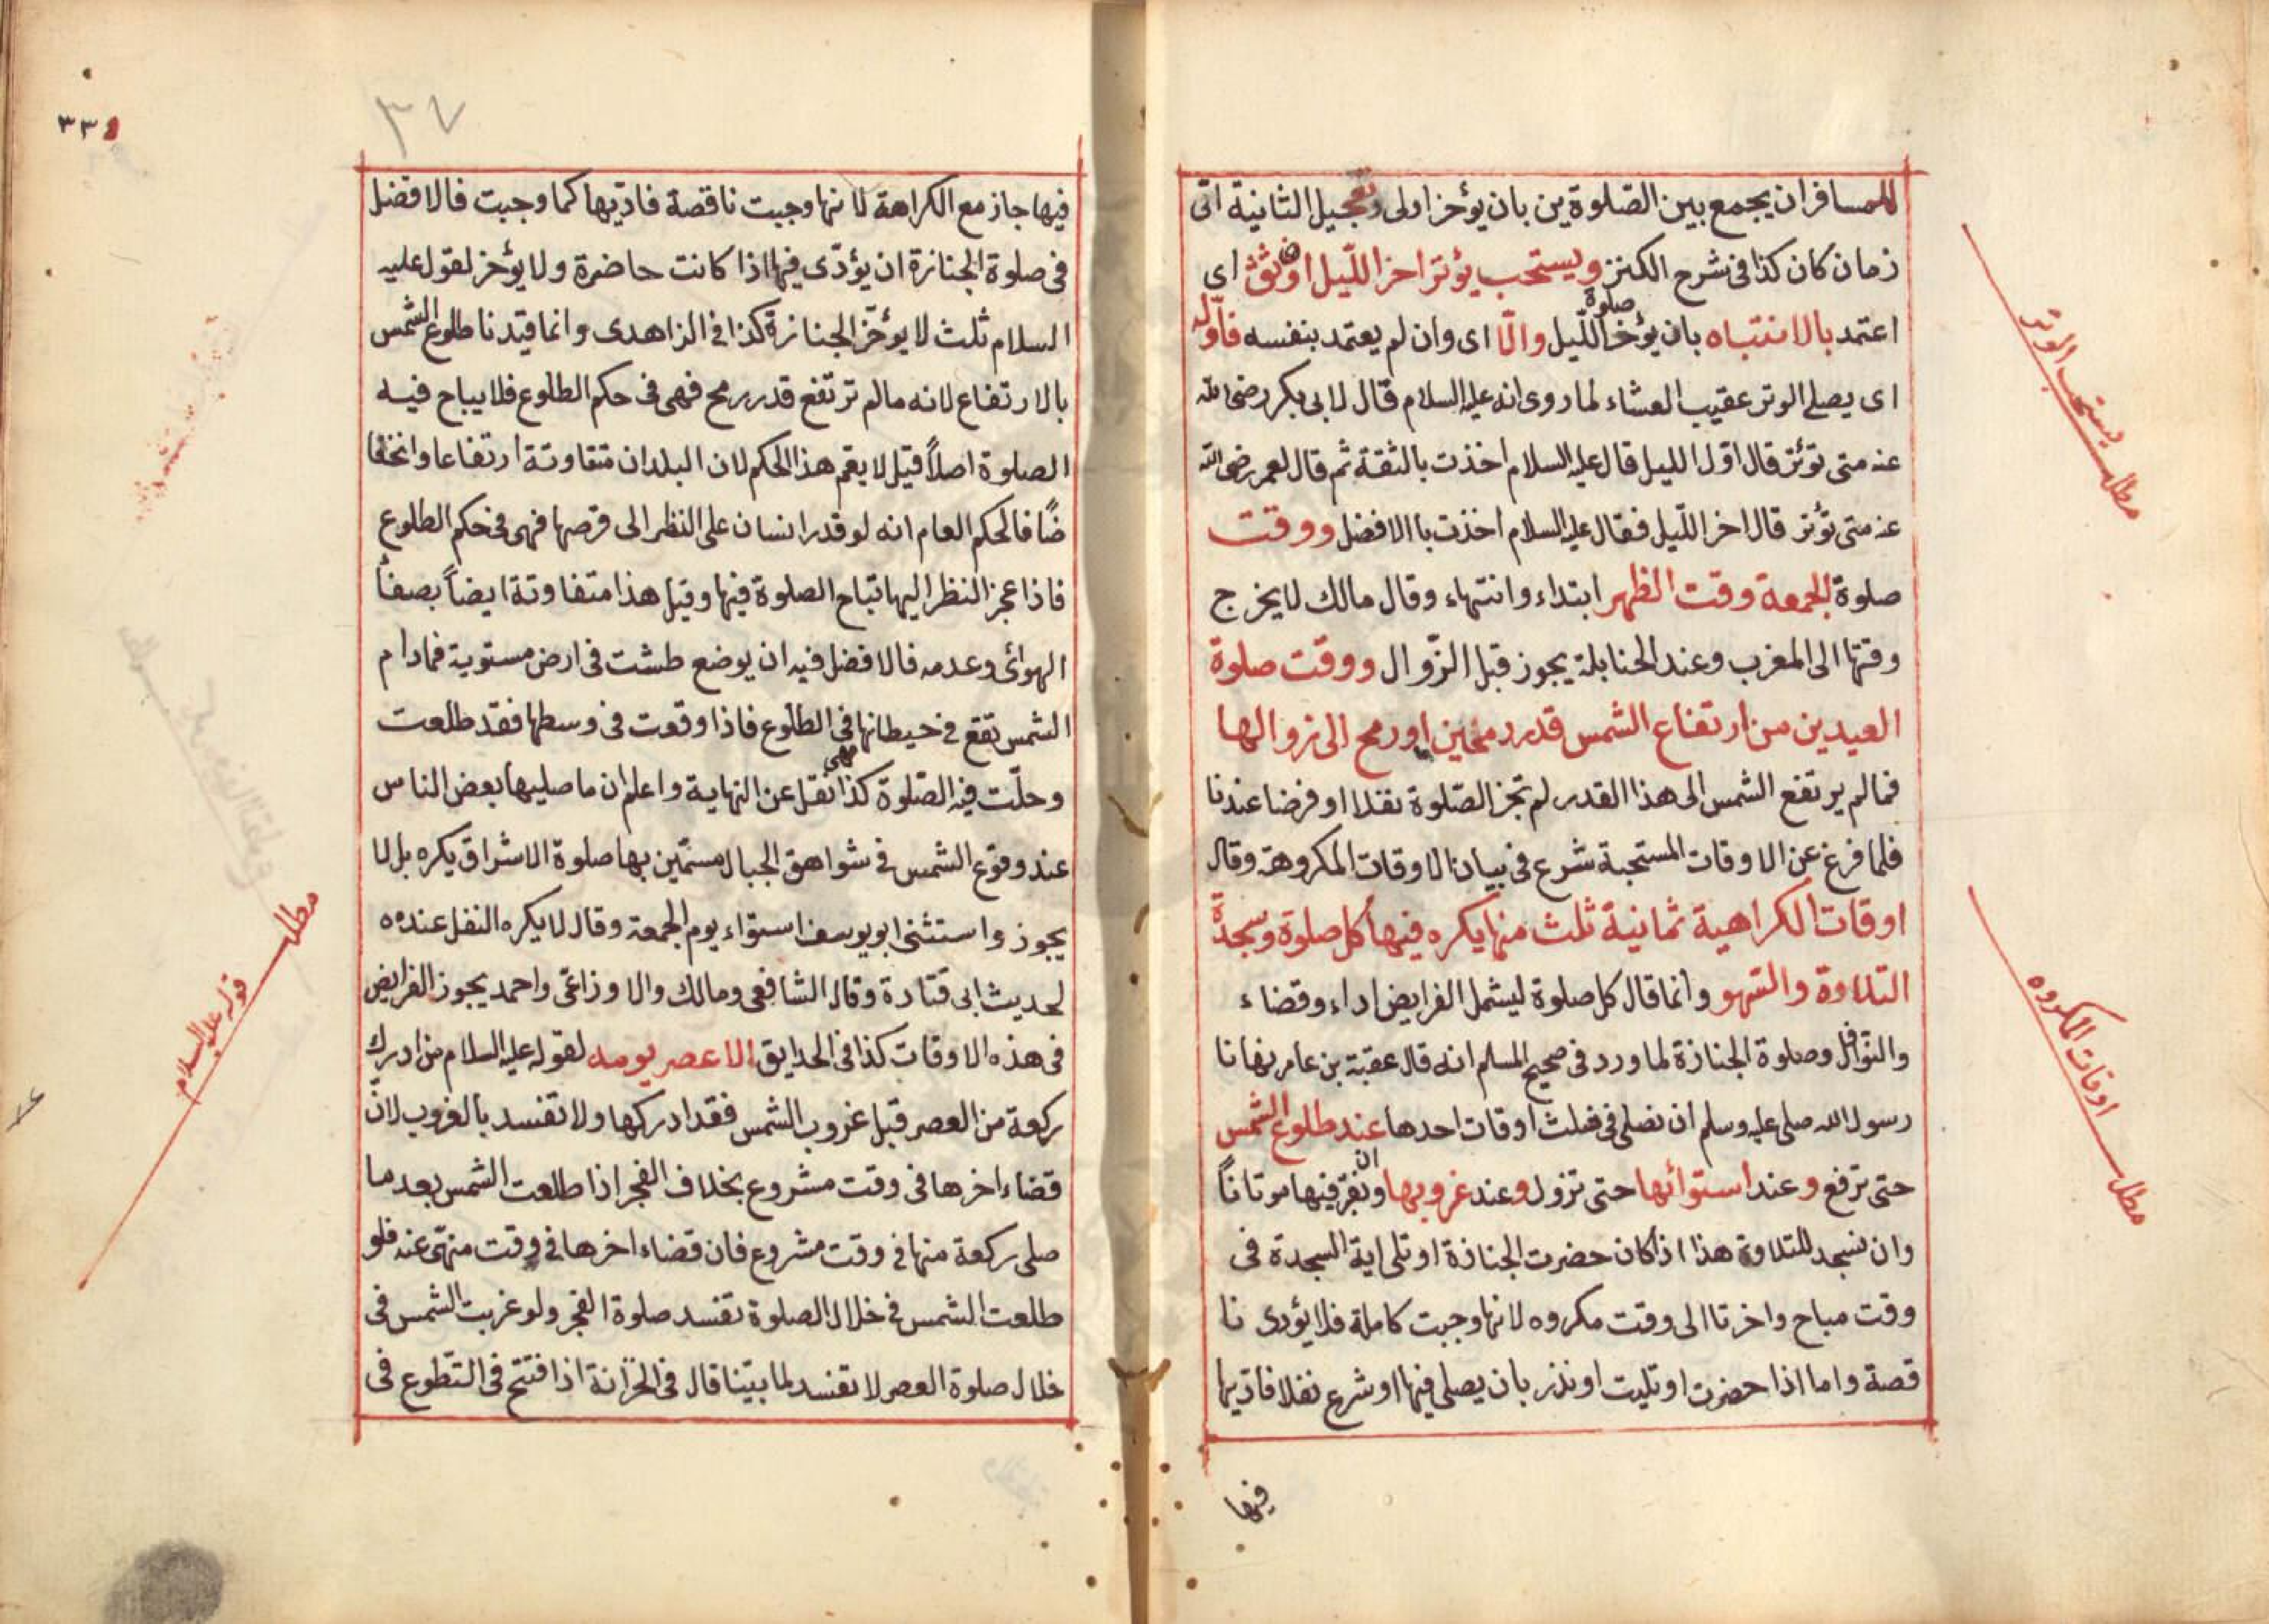 للمسافر ان يجمع بين الصّلوة ين بان يؤخر اولى وتعجيل الثانية اتى
زمان كان كذا فى شرح الكنز ويستحب يؤتر اخر اللّيل ان وثق اى
اعتمد بالانتباه بان يؤخر صلوة اللّيل والّا اى وان لم يعتمد بنفسه فاوّله
اى يصلى الوتر عقيب العشاء لما روى انه عليه السلام قال لابى بكر رضى الله
عنه متى تؤتر قال اوّل الليل قال عليه السلام اخذت بالثقة ثم قال لعمر رضى الله
عنه متى تؤتر قال اخر اللّيل فقال عليه السلام اخذت باالافضل ووقت
صلوة الجمعة وقت الظهر ابتداء وانتهاء وقال مالك لا يخرج
وقتها الى المغرب وعند الحنابلة يجوز قبل الزّوال ووقت صلوة
العيدين من ارتفاع الشمس قدر رمحين او رمح الى زوالها
فما لم يرتفع الشمس الى هذا القدر لم تجز الصّلوة نفلا او فرضا عندنا
فلما فرغ عن الاوقات المستحبة شرع فى بيان الاوقات المكروهة وقال
اوقات الكراهية ثمانية ثلث منها يكره فيها كل صلوة وسجدة
التلاوة والسّهو وانما قال كل صلوة ليشمل الفرايض اداء وقضاء
والنّوافل وصلوة الجنازة لما ورد فى صحيح المسلم انه قال عقبة بن عامر نهانا
رسول الله صلى عليه وسلم ان نصلى فى ثلث اوقات احدها عند طلوع الشمس
حتى ترفع وعند استوائها حتى تزول وعند غروبها وان نقبر فيها موتاناً
وان نسجد للتلاوة هذا اذا كان حضرت الجنازة او تلى اية السجدة فى
وقت مباح واخرتا الى وقت مكروه لانها وجبت كاملة فلا يؤدى نا
قصة واما اذا حضرت او تليت او نذر بان يصلى فيها او شرع نفلا فاديها
فيها
مطلب يستحب الوتر
مطلب اوقات المكروه
٣٣
٣٧
فيها جاز مع الكراهة لانها وجبت ناقصة فاديها كما وجبت فالافضل
فى صلوة الجنازة ان يؤدّى فيها اذا كانت حاضرة ولا يؤخر لقول عليه
السلام ثلث لا يؤخّر الجنازة كذا فى الزاهدى وانما قيدنا طلوع الشمس
بالارتفاع لانه ما لم ترتفع قدر رمح فهى فى حكم الطلوع فلا يباح فيه
الصلوة اصلاً قيل لا يعم هذا الحكم لان البلدان متفاوتة ارتفاعا وانخفا
ضًا فالحكم العام انه لو قدر انسان على النظر الى قرصها فهى فى حكم الطلوع
فاذا عجز النظر اليها تباح الصلوة فيها وقيل هذا متفاوتة ايضاً بصفأ
الهوائى وعدمه فالافضل فيه ان يوضع طشت فى ارض مستوية فمادام
الشمس تقع فى حيطانها فهى فى الطلوع فاذا وقعت فى وسطها فقد طلعت
وحلّت فيه الصّلوة كذا نقل عن النهاية واعلم ان ما صليها بعض الناس
عند وقوع الشمس فى شواهق الجبال مسمّين بها صلوة الاشراق يكره بل لا
يجوز واستثنى ابو يوسف استواء يوم الجمعة وقال لا يكره النفل عنده
لحديث ابى قتادة وقال الشافعى ومالك والاوزاعى واحمد يجوز الفرايض
فى هذه الاوقات كذا فى الحدايق الا عصر يومه لقوله عليه السلام من ادرك
ركعة من العصر قبل غروب الشمس فقد ادركها ولا تفسد بالغروب لانّ
قضاء اخرها فى وقت مشروع بخلاف الفجر اذا طلعت الشمس بعد ما
صلى ركعة منها فى وقت مشروع فان قضاء اخرها فى وقت منهى عنه فلو
طلعت الشمس فى خلال الصلوة تفسد صلوة الفجر ولو غربت الشمس فى
خلال صلوة العصر لا تفسد لما بيّنا قال فى الخزانة اذا افتتح فى التّطوع فى
مطلب قوله عليه السلام